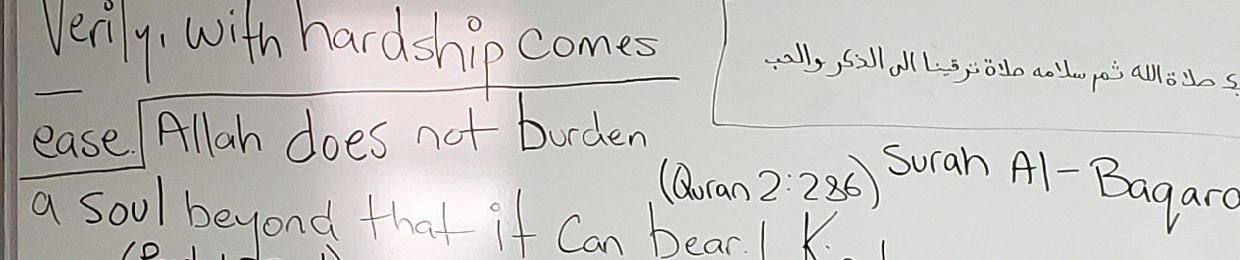 Verily, with hardship comes
ease. Allah does not burden
a soul beyond that it can bear.
(Quran 2:286) Surah Al-Baqara
صلاة الله ثم سلامه صلاة ترقينا الى الذكر والحب